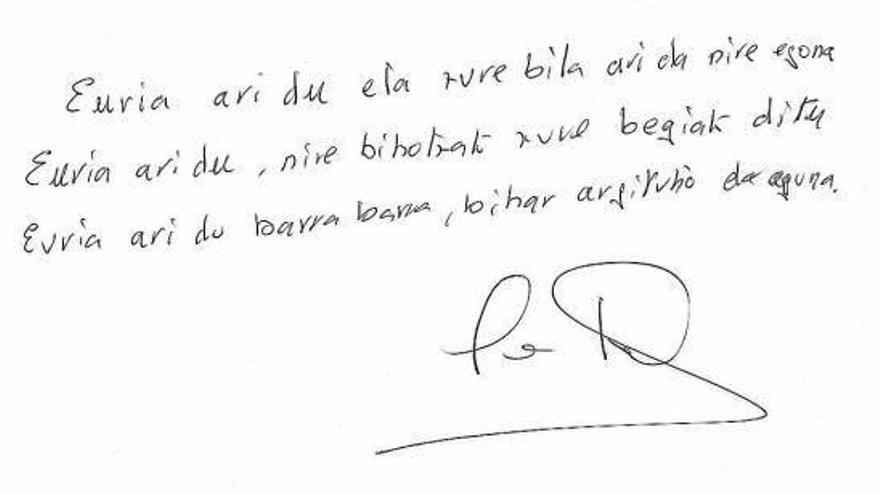 Euria ari du eta zure bila ari da nire egona
Euria ari du, nire bihotzak zure begiak ditu
Euria ari du barra barra, bihar argituko da eguna.